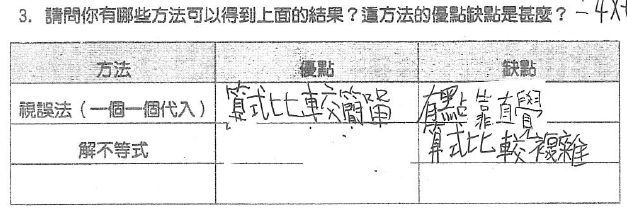 3. 請問你有哪些方法可以得到上面的結果?這方法的優點缺點是甚麼? -4x+
方法 優點 缺點
視誤法(一個一個代入) 算式比較簡單 有點靠直覺
解不等式 算式比較複雜